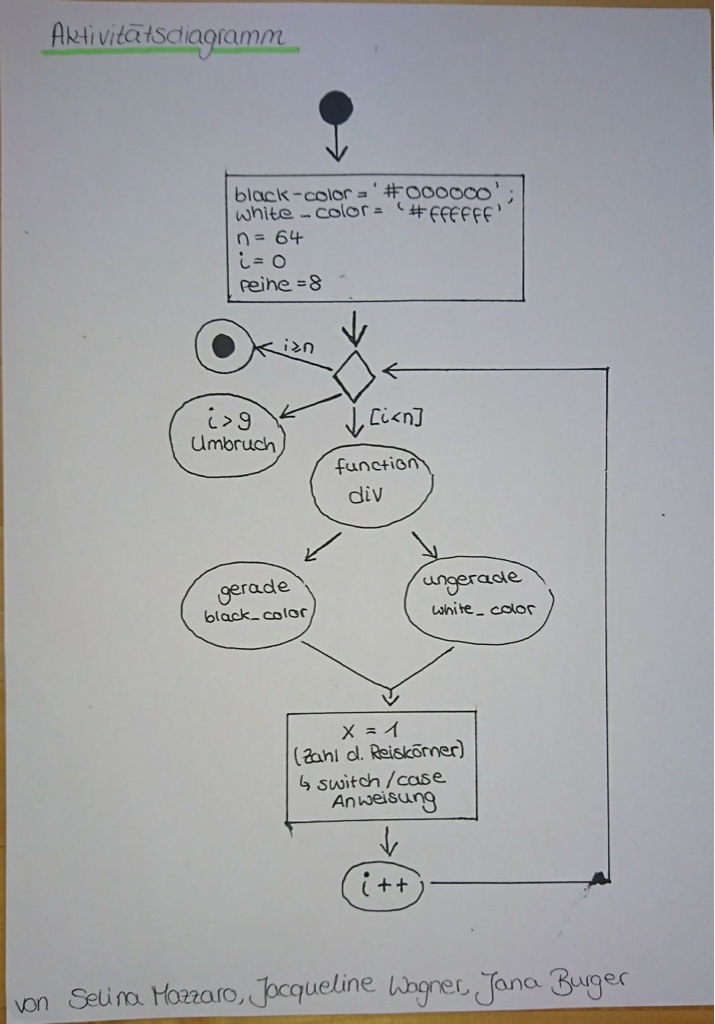 Aktivitätsdiagramm
black-color = '#000000';
white_color = '#ffffff'
n = 64
i = 0
reihe = 8
i≥n
i>9
Umbruch
[i<n]
function
div
gerade
black_color
ungerade
white_color
x = 1
(Zahl d. Reiskörner)
↳ switch/case
Anweisung
i++
von Selina Mazzaro, Jacqueline Wagner, Jana Burger